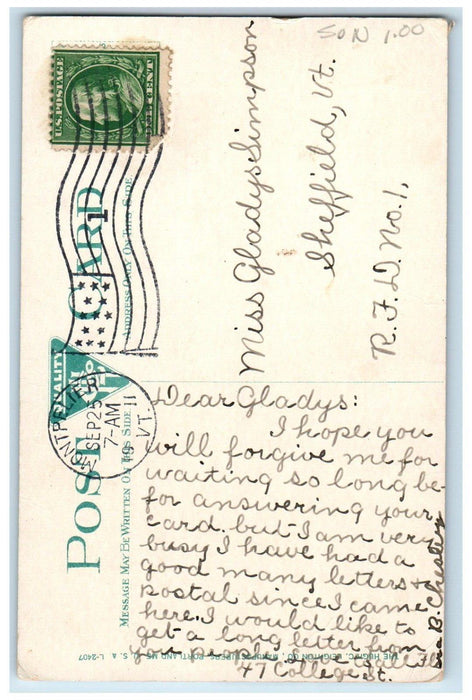 SON 1.00
U.S. POSTAGE
ONE CENT
MONTPELIER
SEP 25
7-AM
1911
VT.
1
POST CARD
QUALITY
MESSAGE MAY BE WRITTEN ON THIS SIDE
ADDRESS ONLY ON THIS SIDE
Miss Gladys Simpson
Sheffield, Vt.
R.F.D. No. 1,
Dear Gladys:
I hope you
will forgive me for
waiting so long be-
for answering your
card. but I am very
busy I have had a
good many letters &
postal since I came
here. I would like to
get a long letter from
you people.
47 College St.
B. Chesley
THE HUGH C. LEIGHTON CO., MANUFACTURERS, PORTLAND, ME., U.S.A. L-2407